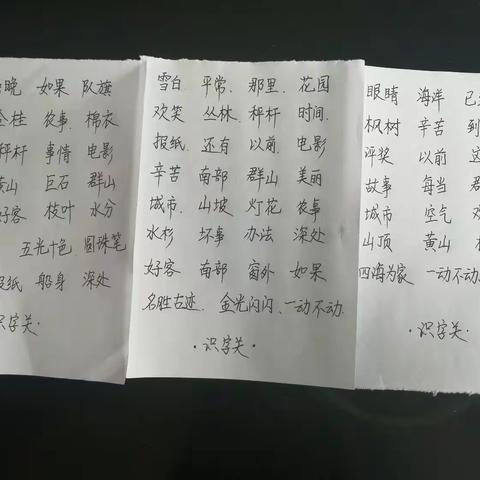 晚 如果 队旗
桂 农事. 棉衣
秤杆 事情 电影
黄山 巨石 群山
好客 枝叶 水分
五光十色 圆珠笔
报纸 船身 深处
识字关·
雪白. 平常. 那里. 花园
欢笑 丛林. 秤杆 时间.
报纸. 还有 以前. 电影
辛苦 南部 群山 美丽
城市. 山坡 灯花 农事
水杉 坏事 办法 深处
好客 南部 窗外 如果
名胜古迹. 金光闪闪、一动不动.
·识字关·
眼睛 海洋 已
枫树 辛苦 到
评奖 以前 这
故事 每当 群
城市 空气 欢
山顶 黄山
四海为家 一动不动
·识字关·